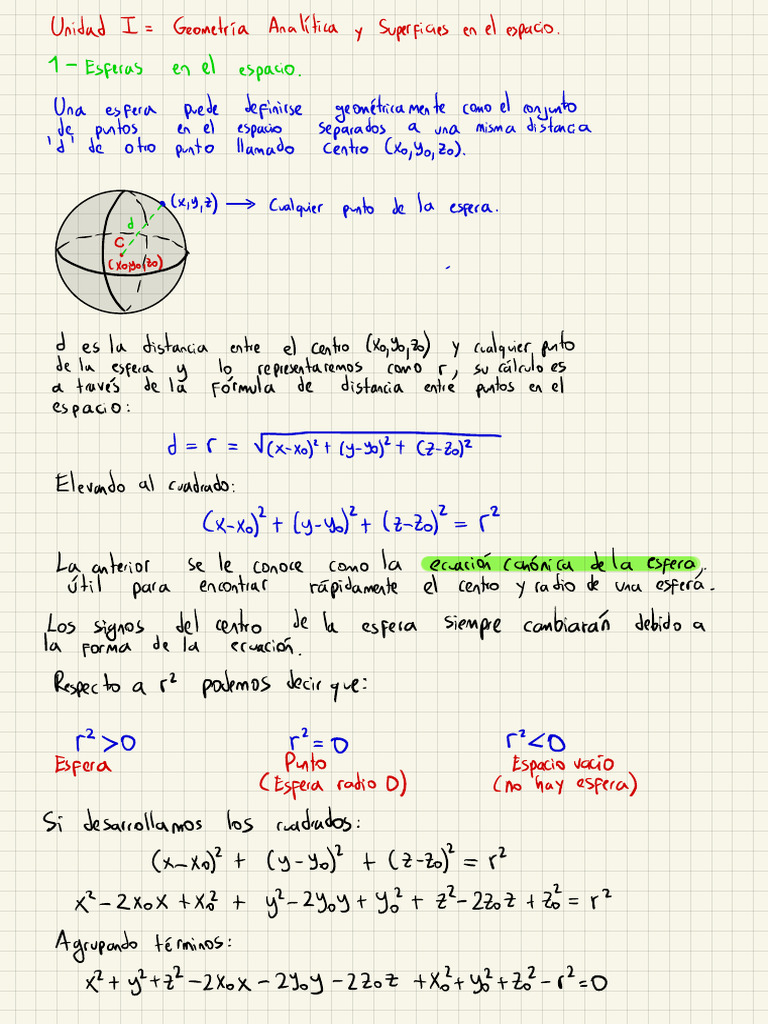 Unidad I = Geometría Analítica y Superficies en el espacio.
1- Esferas en el espacio.
Una esfera puede definirse geométricamente como el conjunto
de puntos en el espacio separados a una misma distancia
'd' de otro punto llamado centro (x₀,y₀,z₀).
(x,y,z) → Cualquier punto de la esfera.
d
C
(x₀,y₀,z₀)
d es la distancia entre el centro (x₀,y₀,z₀) y cualquier punto
de la esfera y lo representaremos como r, su cálculo es
a través de la fórmula de distancia entre puntos en el
espacio:
d = r = √(x-x₀)² + (y-y₀)² + (z-z₀)²
Elevando al cuadrado:
(x-x₀)² + (y-y₀)² + (z-z₀)² = r²
La anterior se le conoce como la ecuación canónica de la esfera,
útil para encontrar rápidamente el centro y radio de una esfera.
Los signos del centro de la esfera siempre cambiarán debido a
la forma de la ecuación.
Respecto a r² podemos decir que:
r²>0 r²=0 r²<0
Esfera Punto Espacio vacío
(Esfera radio 0) (no hay esfera)
Si desarrollamos los cuadrados:
(x-x₀)² + (y-y₀)² + (z-z₀)² = r²
x²-2x₀x+x₀² + y²-2y₀y+y₀² + z²-2z₀z+z₀² = r²
Agrupando términos:
x²+y²+z²-2x₀x-2y₀y-2z₀z+x₀²+y₀²+z₀²-r²=0